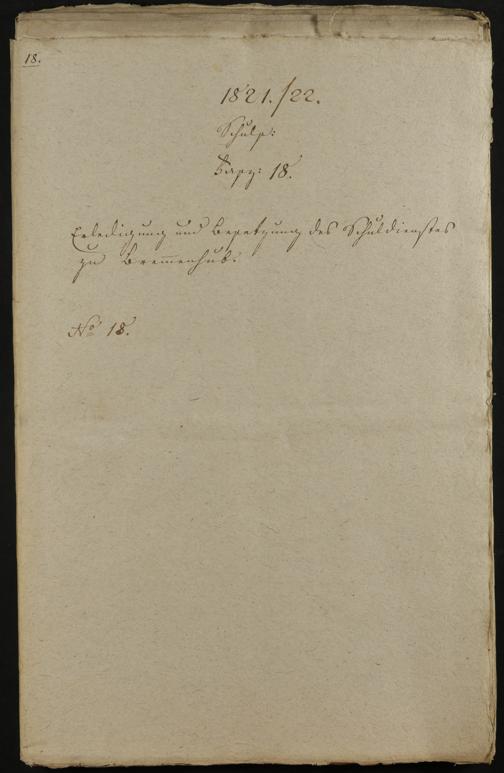 18.
1821./22.
Schuls:
Fasz: 18.
Erledigung und Besetzung des Schuldienstes
zu Bremenhub:
No 18.